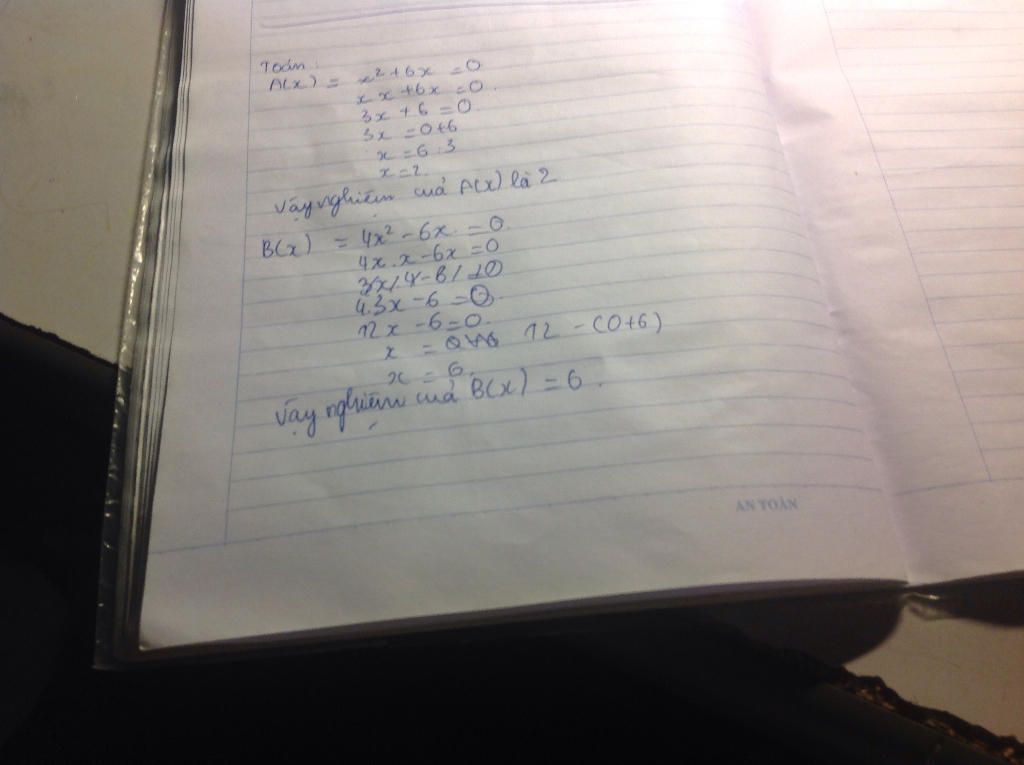 Toán:
A(x) = x² + 6x = 0
x x + 6x = 0.
3x + 6 = 0.
3x = 0+6
x = 6 : 3
x = 2.
Vậy nghiệm của A(x) là 2
B(x) = 4x² - 6x = 0.
4x.x - 6x = 0
4.3x - 6 = 0.
12x - 6 = 0.
x = 12 - (0+6)
x = 6.
Vậy nghiệm của B(x) = 6.
AN TOÀN